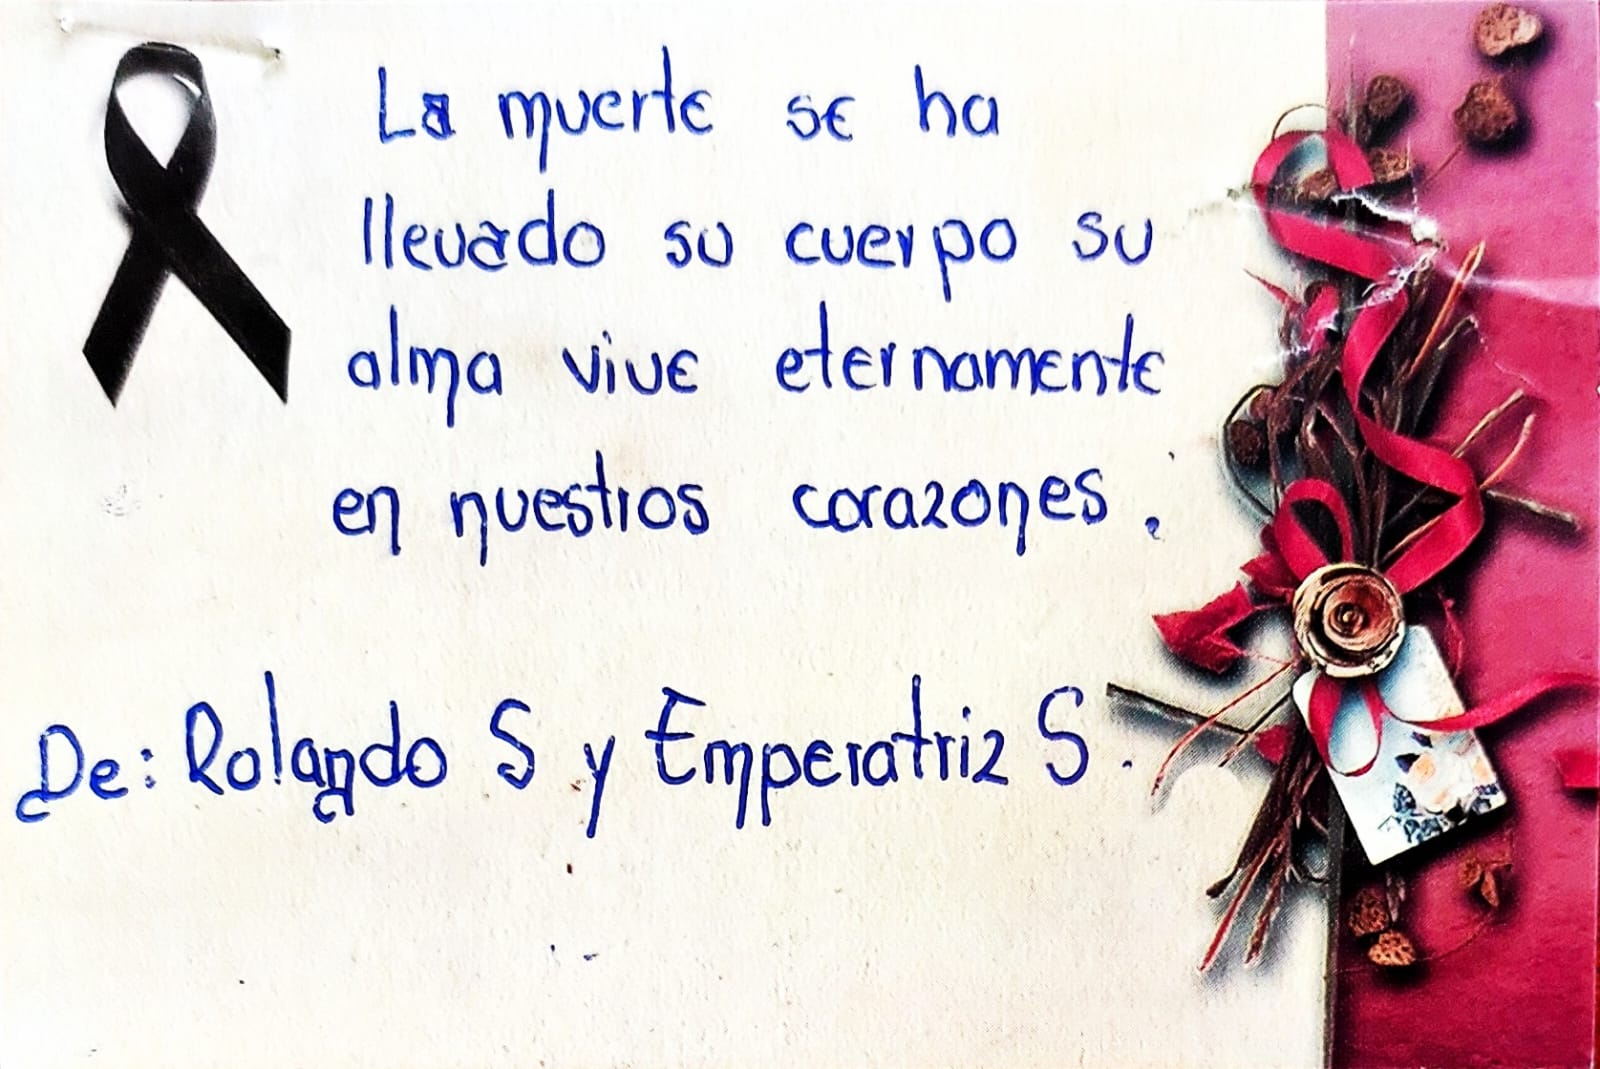 La muerte se ha
llevado su cuerpo su
alma vive eternamente
en nuestros corazones.
De: Rolando S y Emperatriz S.